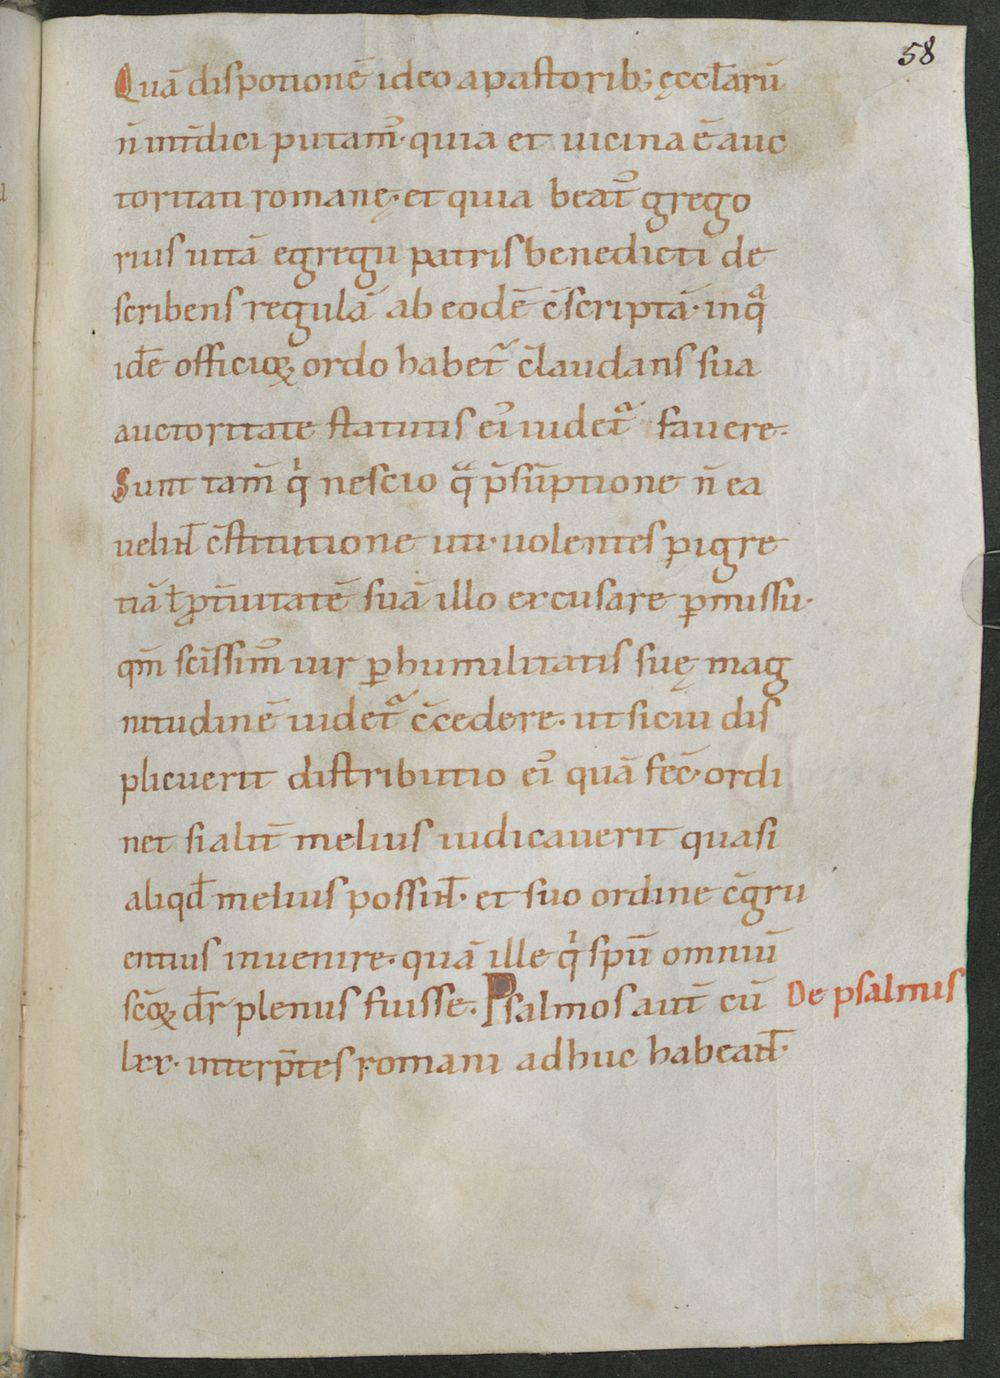 58
Quā dispotionē ideo a pastorib; ęccl̄arū
n̄ int̄dici putam᷒· quia et uicina ē auc
toritati romanę· et quia beat᷒ grego
rius uitā egregii patris benedicti de
scribens regulā ab eodē c̄scriptā· in qͣ
id̄e officioꝝ ordo habet᷑ c̄laudans sua
auctoritate statutis ei᷒ uidet᷑ favere·
Sunt tam̄ qͥ nescio qͣ p̄sūptione n̄ ea
uelint̄ c̄stitutione uti· uolentes pigre
tiā ł ꝓt̄uitatē suā illo excusare ꝑmissu·
qm̄ sc̄issim᷒ uir ꝑ humilitatis suę mag
nitudinē uidet᷑ c̄cedere· ut si cui dis
plicuerit distributio ei᷒ quā fec̄· ordi
net si alit̄ melius iudicauerit quasi
aliqd̄ melius possint̄· et suo ordine c̄gru
entius inuenire· quā ille qͥ spū omniū
sc̄oꝝ dr̄ plenus fuisse. Psalmos aut̄ cū De psalmis
lxx· interp̄tes romani adhuc habeant̄·